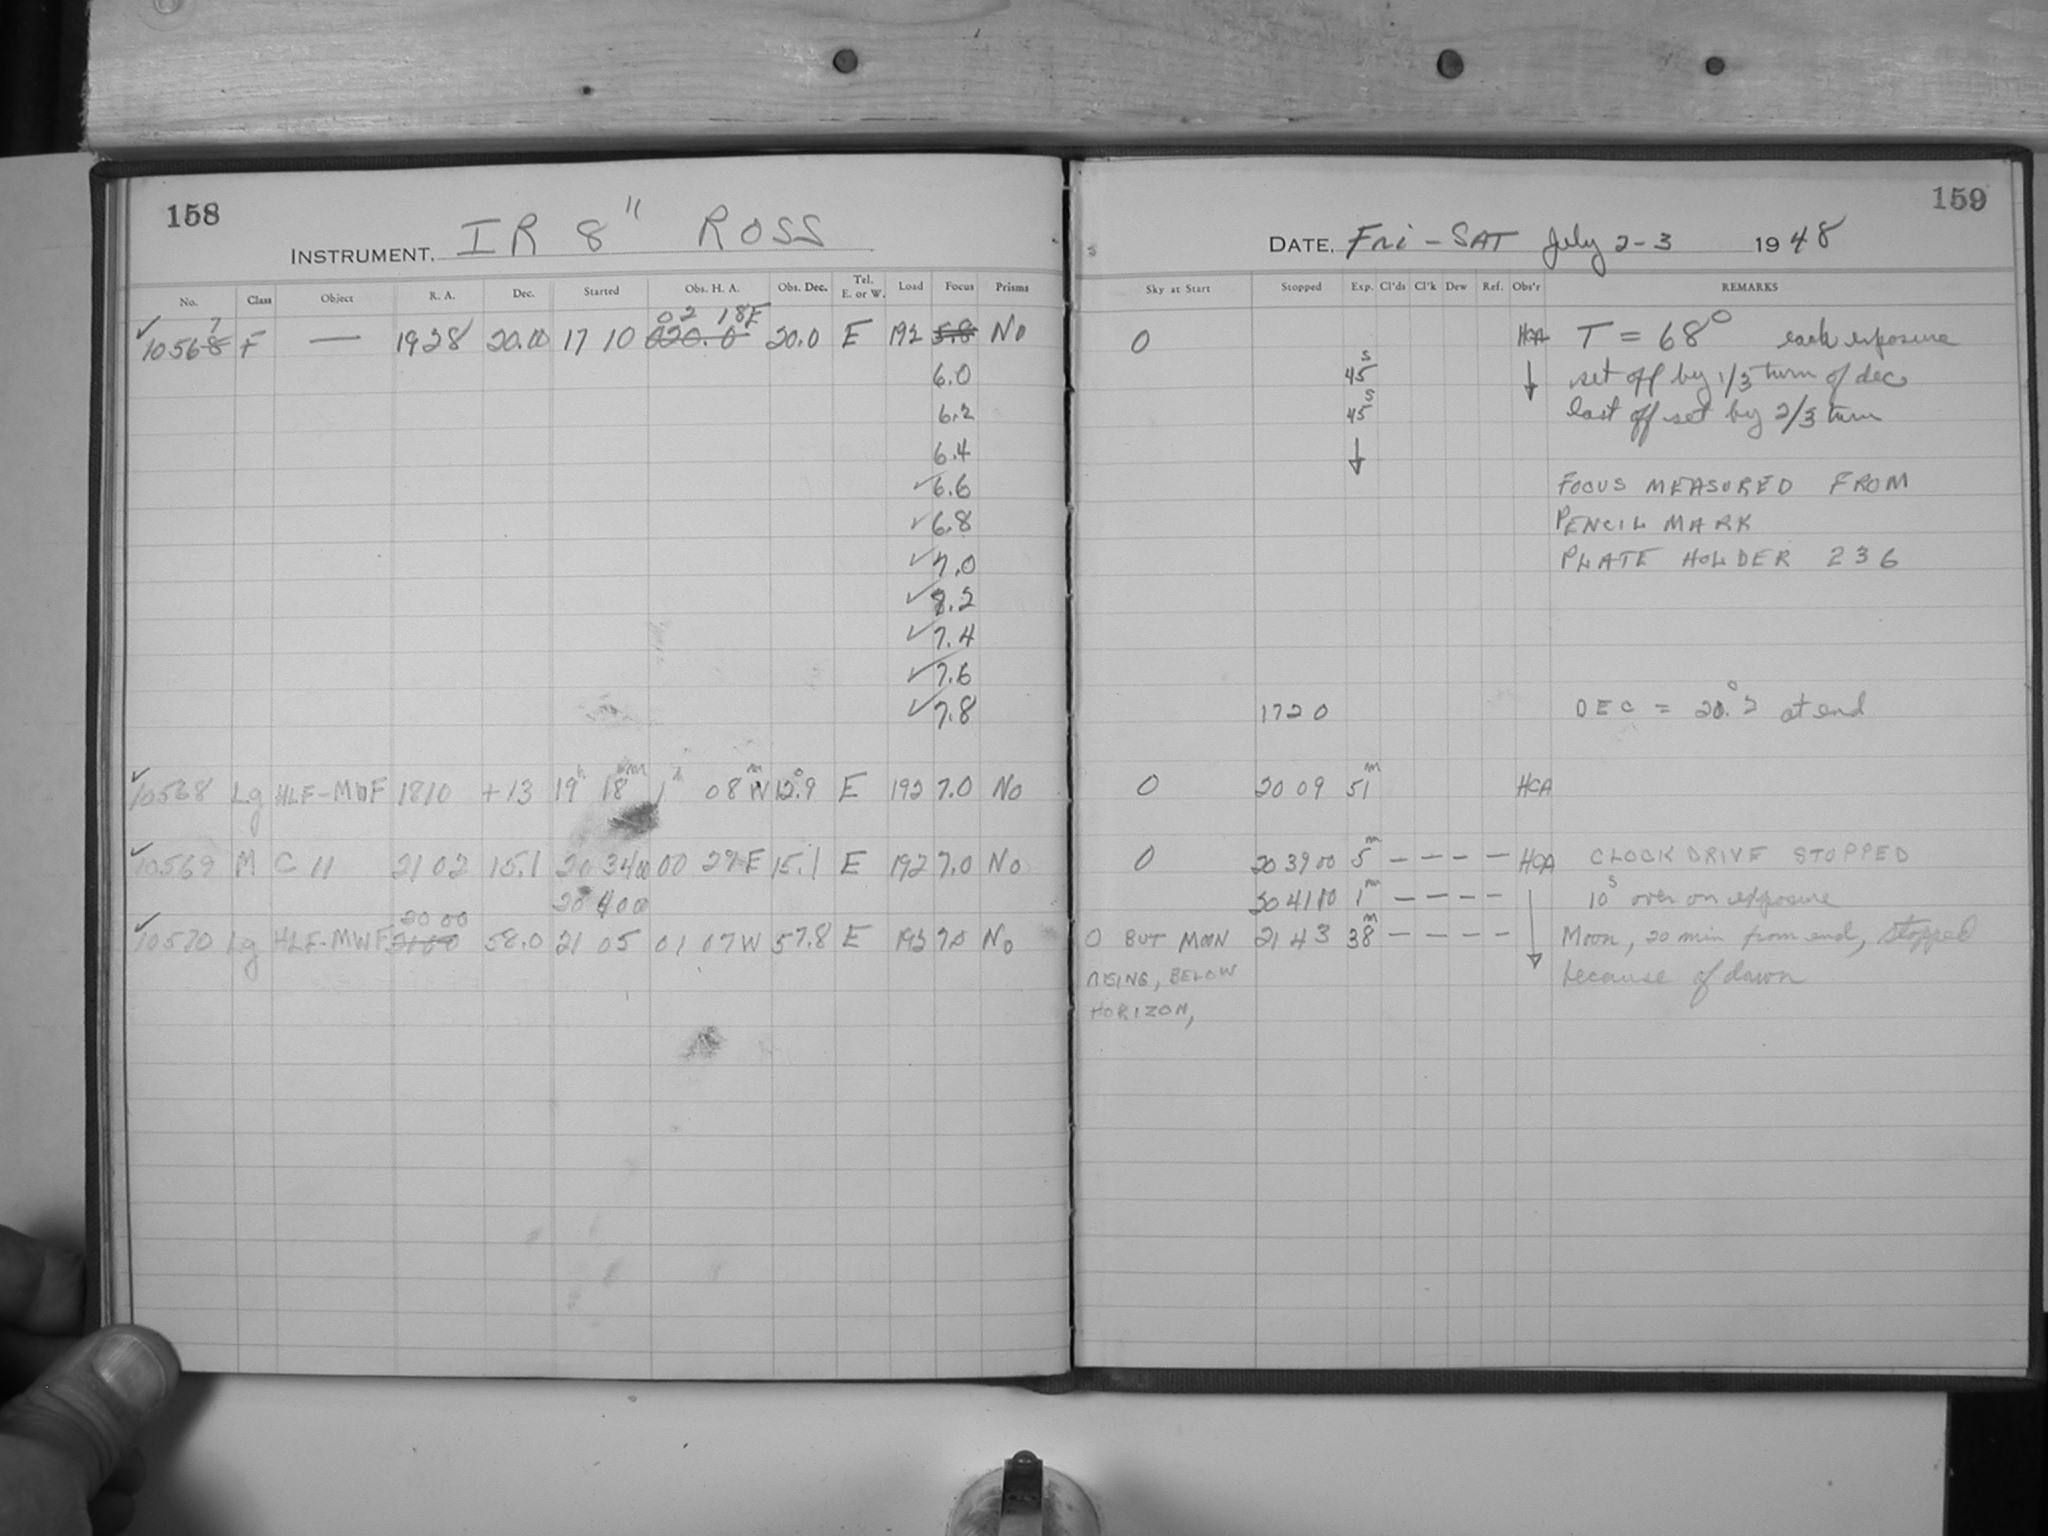 158
INSTRUMENT. IR 8" ROSS
No. Class Object R. A. Dec. Started Obs. H. A. Obs. Dec. Tel. E. or W. Load Focus Prisms
7 02 18E
✓10568 F — 1928 20.00 17 10 020.0 20.0 E 192 5.8 No
6.0
6.2
6.4
✓6.6
✓6.8
✓7.0
✓8.2
✓7.4
✓7.6
✓7.8
✓10568 Lg HLF-MWF 1810 +13 19h 18m 1h 08mW 12°.9 E 192 7.0 No
✓10569 M C 11 21 02 15.1 20 34 00 00 29 E 15.1 E 192 7.0 No
20 40 00
20 00
✓10570 Lg HLF-MWF 21 00 58.0 21 05 01 07W 57.8 E 193 7.0 No
159
DATE. Fri-SAT July 2-3 1948
Sky at Start Stopped Exp. Cl'ds Cl'k Dew Ref. Obs'r REMARKS
0 HCA T = 68° each exposure
45s set off by 1/3 turn of dec
45s last off set by 2/3 turn
FOCUS MEASURED FROM
PENCIL MARK
PLATE HOLDER 236
1720 DEC = 20.°2 at end
0 20 09 51m HCA
0 20 39 00 5m — — — — HCA CLOCK DRIVE STOPPED
20 41 10 1m — — — — 10s over on exposure
0 BUT MOON 21 43 38m — — — — Moon, 20 min from end, stopped
RISING, BELOW because of dawn
HORIZON,